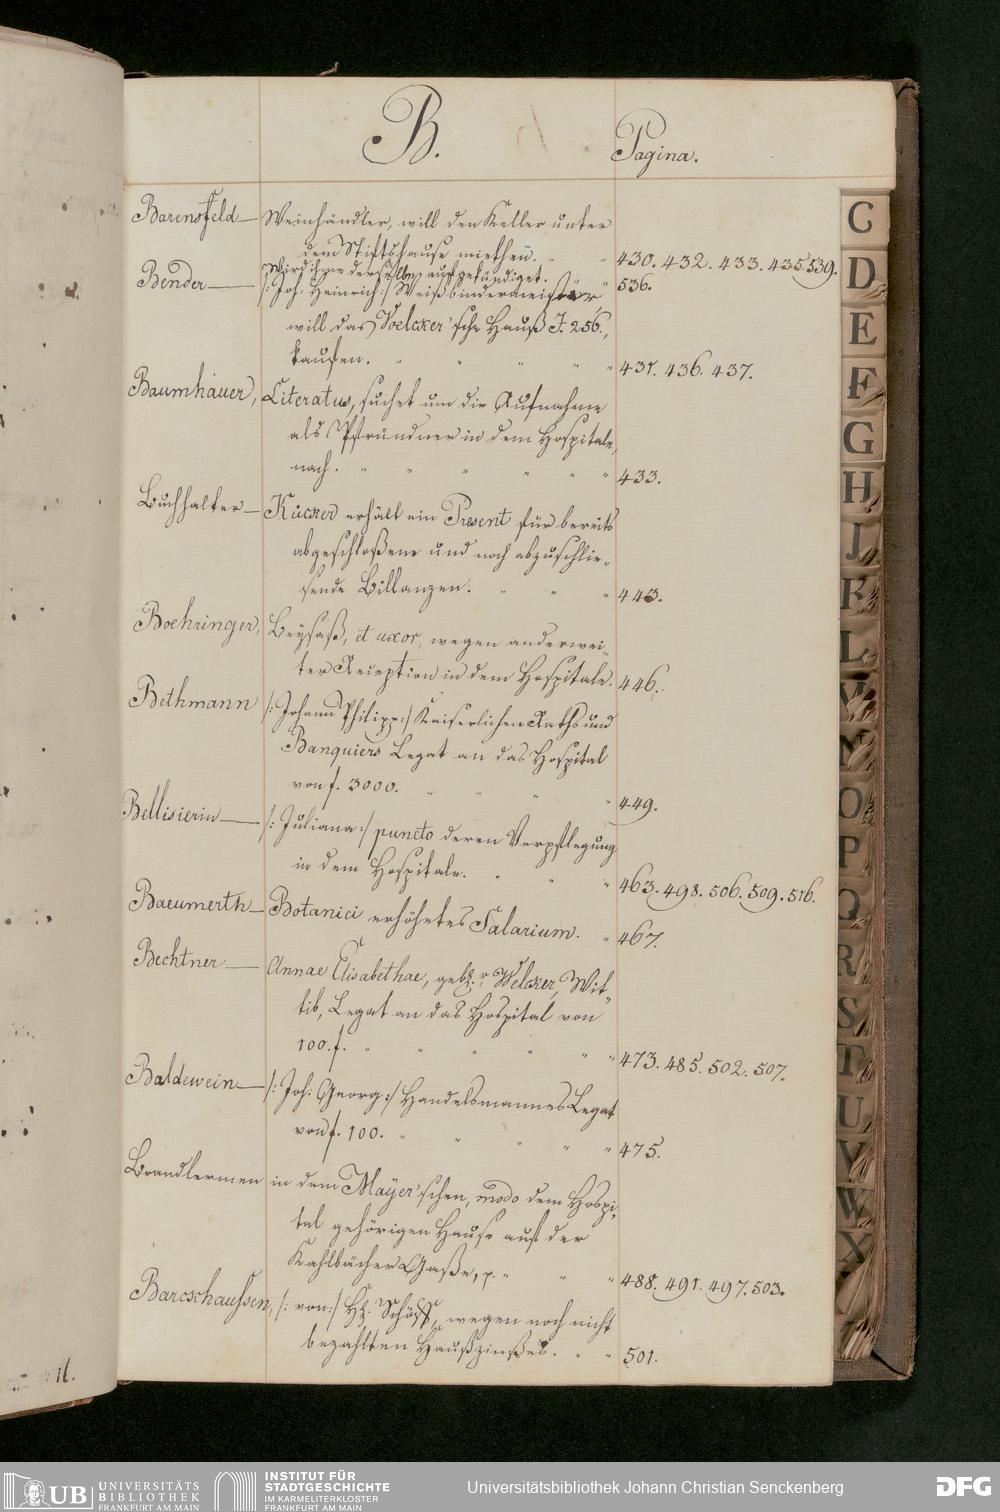 B.
Pagina.
Barensfeld — Weinhändler, will den Keller unter
dem Stiftshause miethen. 430. 432. 433. 435. 539.
Wird ihme derselbe aufgekündiget. 536.
Bender — /: Joh. Heinrich :/ Weißbindermeister
will das Voelcker'sche Hauß J. 256.,
kaufen. 431. 436. 437.
Baumhauer, Literatus, suchet um die Aufnahme
als Pfründner in dem Hospitale,
nach. 433.
Buchhalter — Kücker erhält ein Present für bereits
abgeschloßene und noch abzuschlie-
sende Billanzen. 443.
Boehringer, Beysaß, et uxor, wegen anderwei-
ter Reception in dem Hospitale. 446.
Bethmann /: Johann Philipp :/ Kaiserlichen Raths und
Banquiers Legat an das Hospital
von f. 3000. 449.
Bellisierin — /: Juliana :/ puncto deren Verpflegung
in dem Hospitale. 463. 498. 506. 509. 516.
Baeumerth — Botanici erhöhetes Salarium. 467.
Bechtner — Annae Elisabethae, Welcker, Wit-
tib, Legat an das Hospital von
100. f. 473. 485. 502. 507.
Baldewein — /: Joh: Georg :/ Handelsmannes Legat
von f. 100. 475.
Brandlermen in dem Mayer'schen, modo dem Hospi-
tal gehörigen Hause auf der
Kahlbächer Gaße, p. 488. 491. 497. 503.
Barckhaussen, /: von :/ H. Schöff, wegen noch nicht
bezahlten Haußzinßes. 501.
C
D
E
F
G
H
J
K
L
M
N
O
P
Q
R
S
T
U
V
W
X
UB UNIVERSITÄTS
BIBLIOTHEK
FRANKFURT AM MAIN
INSTITUT FÜR
STADTGESCHICHTE
IM KARMELITERKLOSTER
FRANKFURT AM MAIN
Universitätsbibliothek Johann Christian Senckenberg
DFG